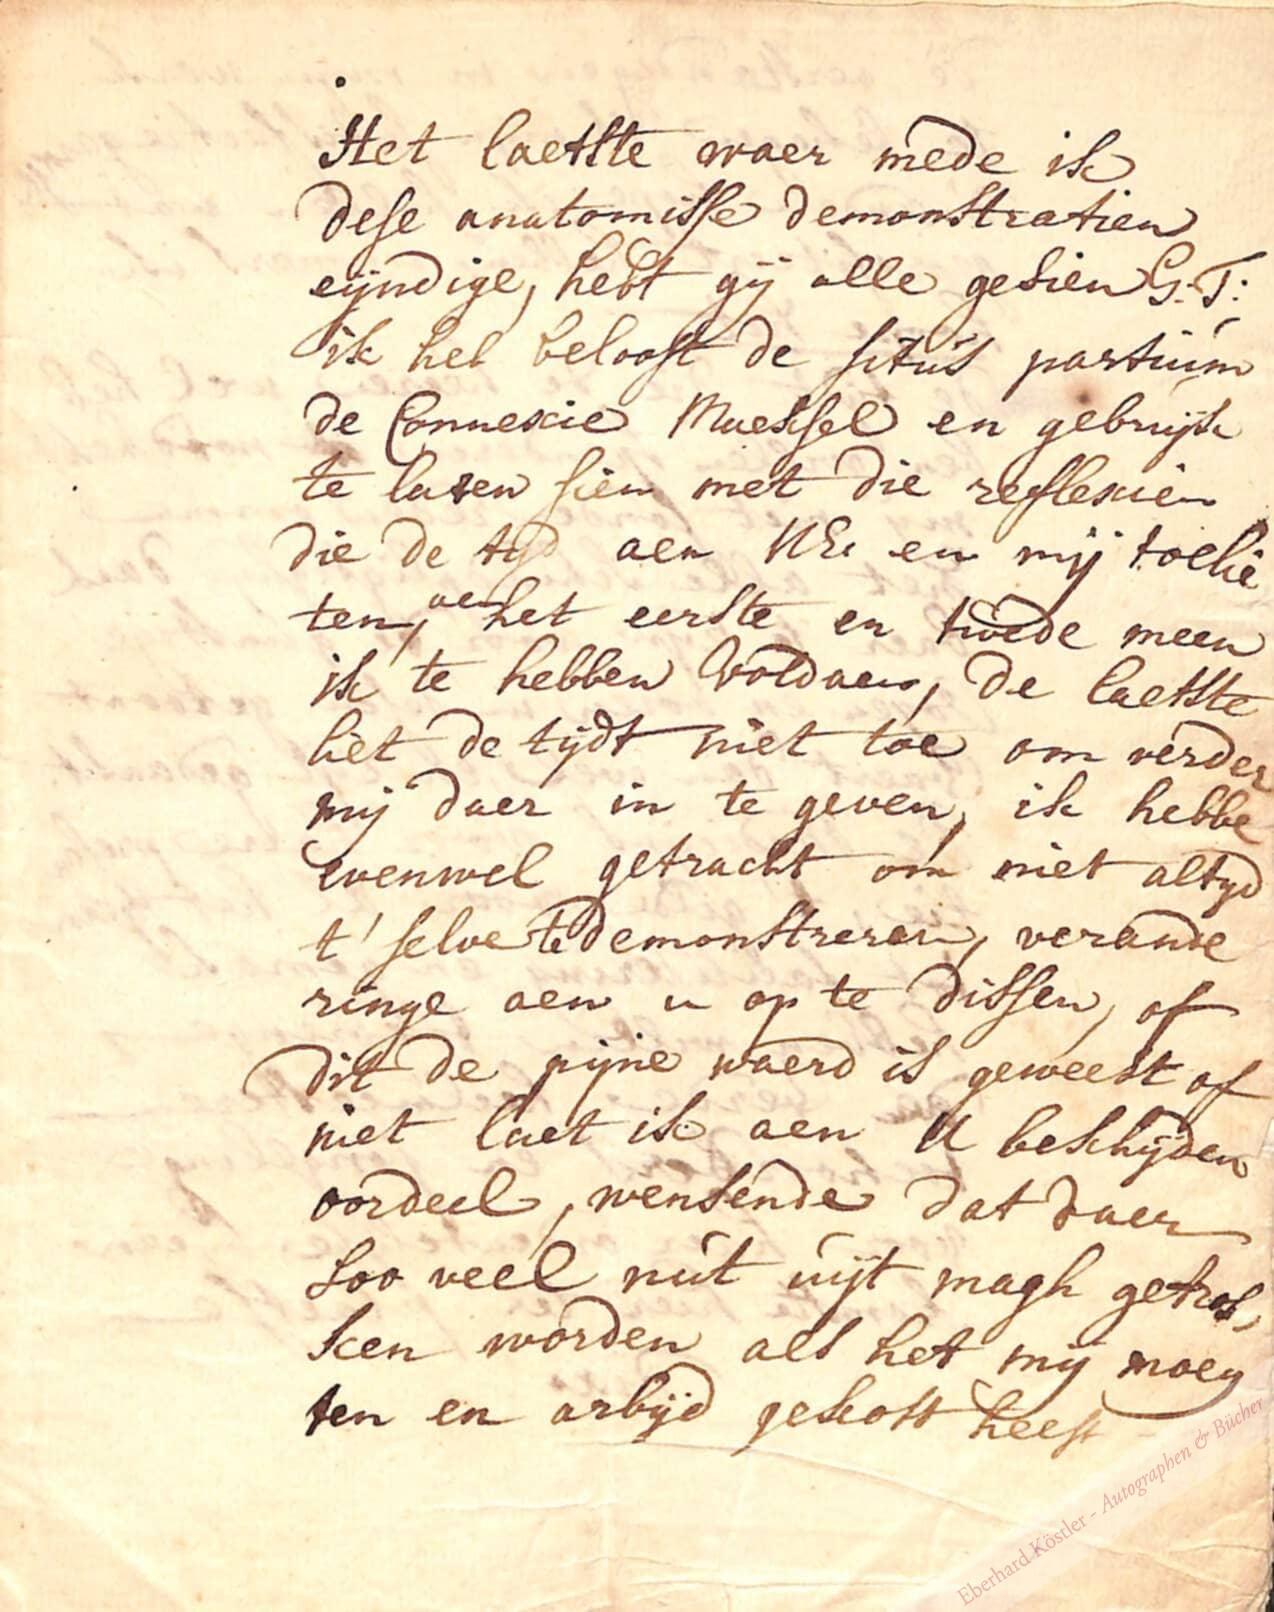 Het laetste waer mede ik
dese anatomisse demonstratien
eijndige, hebt gij alle gesien G. T:
ik heb belooft de situs partium
de Connexie Maeksel en gebruijk
te laten sien met die reflexien
die de tyd aen UE. en mij toelie
ten, aen het eerste en twede meen
ik te hebben voldaen, de laetste
liet de tijdt niet toe om verder
mij daer in te geven, ik hebbe
evenwel getracht om niet altyd
t' selve te demonstreren, verande
ringe aen u op te dissen, of
dit de pijne waerd is geweest of
niet laet ik aen U beschijden
oordeel, wensende dat daer
soo veel nut uijt magh getrok,
ken worden als het mij moey
ten en arbijd gekost heeft
Eberhard Köstler - Autographen & Bücher